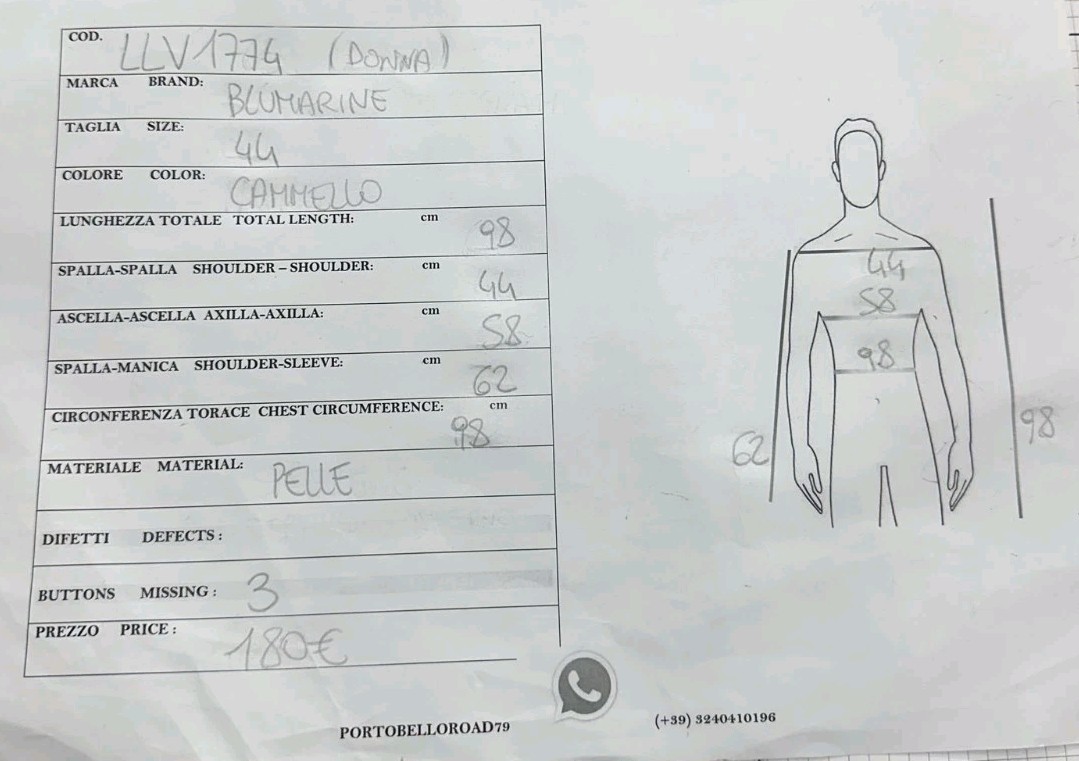 COD. LLV1774 (DONNA)
MARCA BRAND: BLUMARINE
TAGLIA SIZE: 44
COLORE COLOR: CAMMELLO
LUNGHEZZA TOTALE TOTAL LENGTH: cm 98
SPALLA-SPALLA SHOULDER – SHOULDER: cm 44
ASCELLA-ASCELLA AXILLA-AXILLA: cm 58
SPALLA-MANICA SHOULDER-SLEEVE: cm 62
CIRCONFERENZA TORACE CHEST CIRCUMFERENCE: cm 98
MATERIALE MATERIAL: PELLE
DIFETTI DEFECTS :
BUTTONS MISSING : 3
PREZZO PRICE : 180€
44
58
98
62
98
PORTOBELLOROAD79
(+39) 3240410196